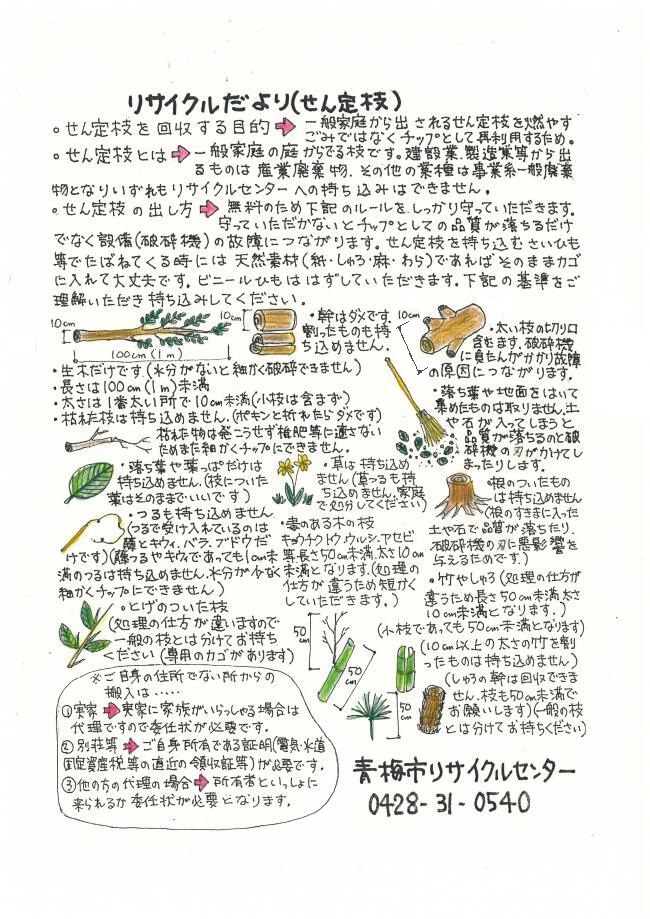 リサイクルだより(せん定枝)
○せん定枝を回収する目的➡一般家庭から出されるせん定枝を燃やす
ごみではなくチップとして再利用するため。
○せん定枝とは➡一般家庭の庭からでる枝です。建設業、製造業等から出
るものは産業廃棄物、その他の業種は事業系一般廃棄
物となりいずれもリサイクルセンターへの持ち込みはできません。
○せん定枝の出し方➡無料のため下記のルールをしっかり守っていただきます。
守っていただかないとチップとしての品質が落ちるだけ
でなく設備(破砕機)の故障につながります。せん定枝を持ち込むさいひも
等でたばねてくる時には天然素材(紙・しゅろ・麻・わら)であればそのままカゴ
に入れて大丈夫です。ビニールひもははずしていただきます。下記の基準をご
理解いただき持ち込みしてください。
10cm
100cm(1m)
・生木だけです。(水分がないと細かく破砕できません)
・長さは100cm(1m)未満
・太さは1番太い所で10cm未満(小枝は含まず)
・枯れた枝は持ち込めません。(ポキンと折れたらダメです)
枯れた物は発こうせず堆肥等に適さない
ためまた細かくチップにできません。
10cm
・幹はダメです。
割ったものも持
ち込めません。
10cm
・太い枝の切り口
含みます。破砕機
に負たんがかかり故障
の原因につながります。
・落ち葉や地面をはいて
集めたものは取りません。土
や石が入ってしまうと
品質が落ちるのと破
砕機の刃がかけてし
まったりします。
・落ち葉や葉っぱだけは
持ち込めません。(枝についた
葉はそのままでいいです)
・草は持ち込め
ません(草つるも持
ち込めません。家庭
で処分してください)
・根のついたもの
は持ち込めません
(根のすきまに入った
土や石で品質が落ちたり、
破砕機の刃に悪影響を
与えるためです。)
・つるも持ち込めません
(つるで受け入れているのは
藤とキウィ、バラ、ブドウだ
けです)(藤つるやキウィであっても1cm未
満のつるは持ち込めません。水分が少なく
細かくチップにできません)
・毒のある木の枝
キョウチクトウ、ウルシ、アセビ
等長さ50cm未満、太さ10cm
未満となります。(処理の
仕方が違うため短かく
していただきます。)
・とげのついた枝
(処理の仕方が違いますので
一般の枝とは分けてお持ち
ください(専用のカゴがあります)
・竹やしゅろ(処理の仕方が
違うため長さ50cm未満太さ
10cm未満となります。)
(小枝であっても50cm未満となります)
(10cm以上の太さの竹を割
ったものは持ち込めません)
(しゅろの幹は回収できま
せん。枝も50cm未満で
お願いします)(一般の枝
とは分けてお持ちください)
50cm
50cm
50cm
※ご自身の住所でない所からの
搬入は・・・・・
①実家➡実家に家族がいらっしゃる場合は
代理ですので委任状が必要です。
②別荘等➡ご自身所有である証明(電気・水道
固定資産税等の直近の領収証等)が必要です。
③他の方の代理の場合➡所有者といっしょに
来られるか委任状が必要となります。
青梅市リサイクルセンター
0428-31-0540